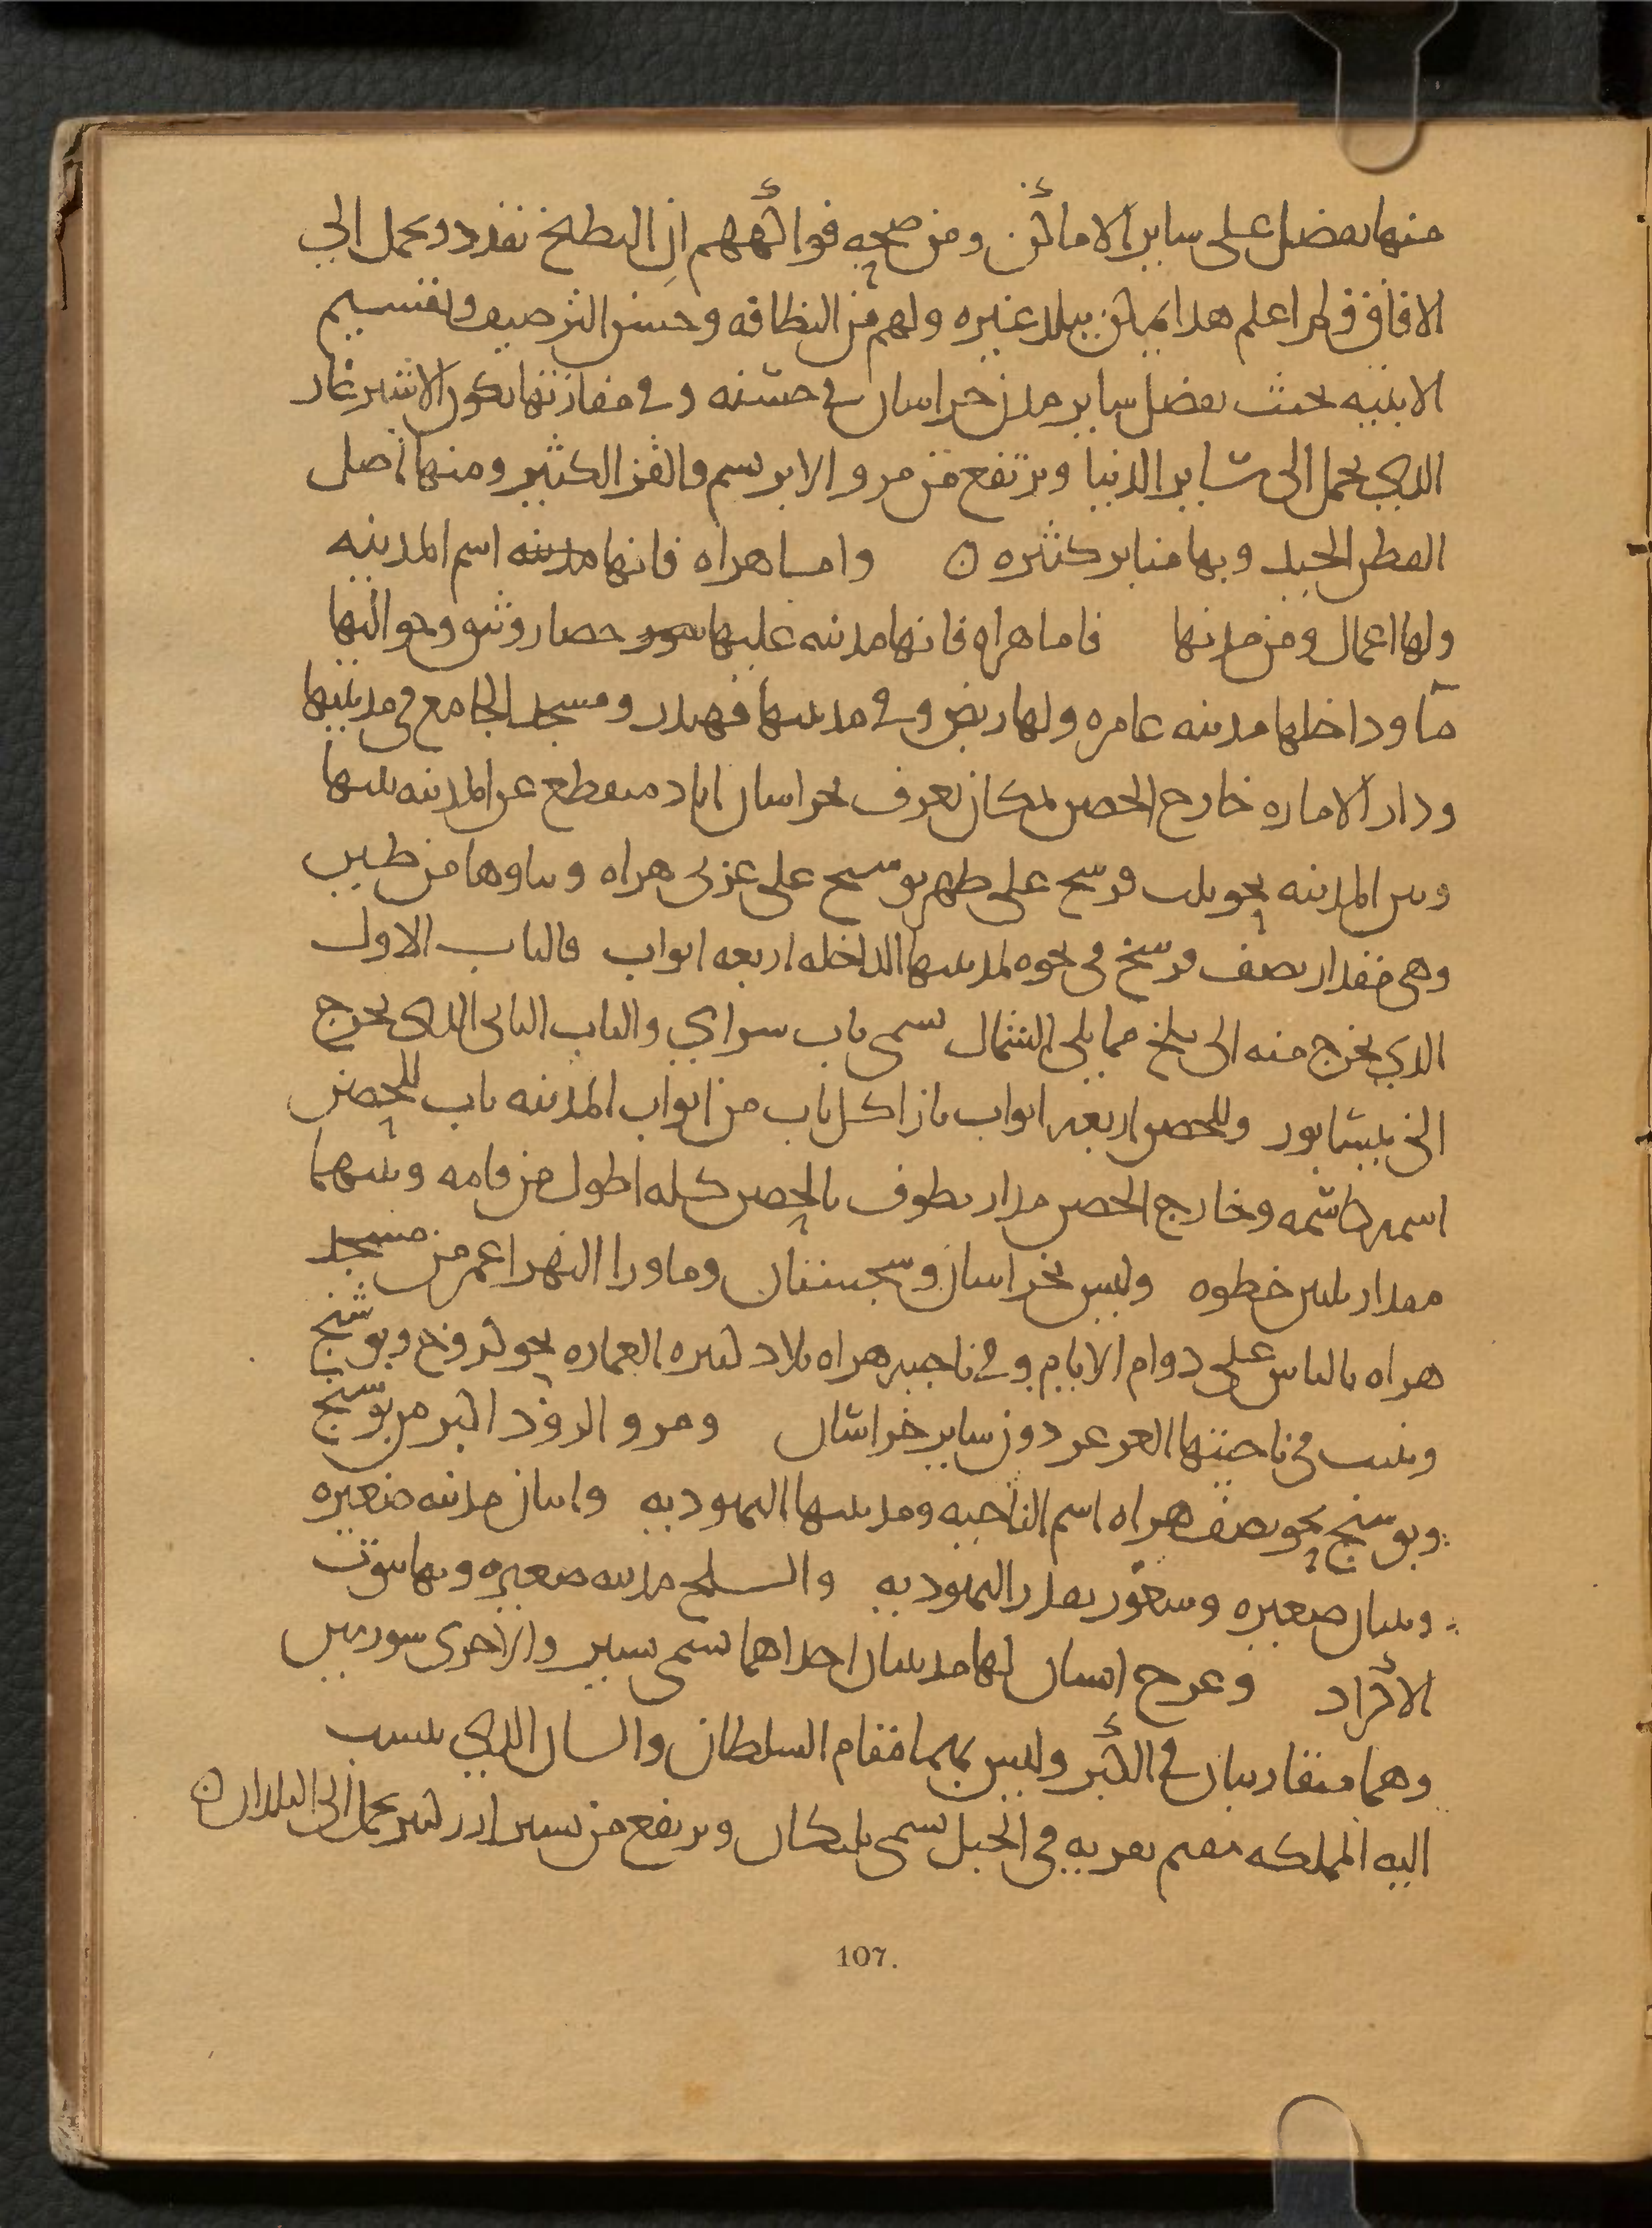 منها يفضل على ساير الاماكن ومن صحه فواكههم ان البطيخ يقدد ويحمل الى
الافاق فلم اعلم هذا يمكن ببلد غيره ولهم من النظافه وحسن الترصيف وتقسيم
الابنيه بحيث يفضل ساير مدن خراسان في حسنه وفي مفازتها يكون الاشترغاز
الذي يحمل الى ساير الدنيا ويرتفع من مرو الابريسم والقز الكثير ومنها اصل
القطن الجيد وبها منابر كثيره ن واما هراه فانها مدينه اسم المدينه
ولها اعمال ومن مدنها فاما هراه فانها مدينه عليها سور حصار وثيق وحواليها
مآ وداخلها مدينه عامره ولها ربض وفي مدينتها قهندز ومسجد الجامع في مدينتها
ودار الاماره خارج الحصن بمكان يعرف بخراسان اباد منقطع عن المدينه بينها
وبين المدينه نحو ثلث فرسخ على طهر بوسنج على غربى هراه وبناوها من طين
وهى مقدار نصف فرسخ فى نحوه لمدينتها الداخله اربعه ابواب فالباب الاول
الذي يخرج منه الى بلخ مما يلى الشمال يسمى باب سراي والباب الثانى الذى يخرج
الى نيسابور وللحصن اربعه ابواب بازا كل باب من ابواب المدينه باب للحصن
اسمه كاسمه وخارج الحصن جدار يطوف بالحصن كله اطول من قامه وبينهما
مقدار ثلثين خطوه وليس بخراسان وسجستان وماورا النهر اعمر من مسجد
هراه بالناس على دوام الايام وفي ناحيه هراه بلاد كثيره العماره نحو كروخ وبوشنج
وينبت فى ناحيتها العرعر دون ساير خراسان ومرو الروذ اكبر من بوسنج
وبوسنج نحو نصف هراه اسم الناحيه ومدينتها اليهوديه وانبار مدينه صغيره
صغيره بقدر اليهوديه مدينه صغيره وبها بيوت
الاكراد وغرج الشار لها مدينتان احداهما تسمى بشير والاخرى سورمين
وهما متقاربتان في الكبر وليس بهما مقام السلطان والشار الذي ينسب
اليه المملكه مقيم بقريه فى الجبل تسمى بليكان ويرتفع من بشير ارز كثير يحمل الى البلدان ن
107.